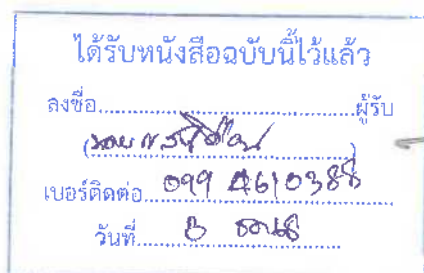 ได้รับหนังสือฉบับนี้ไว้แล้ว
ลงชื่อ..............................ผู้รับ
(..............................)
เบอร์ติดต่อ 099 4610388
วันที่ 8